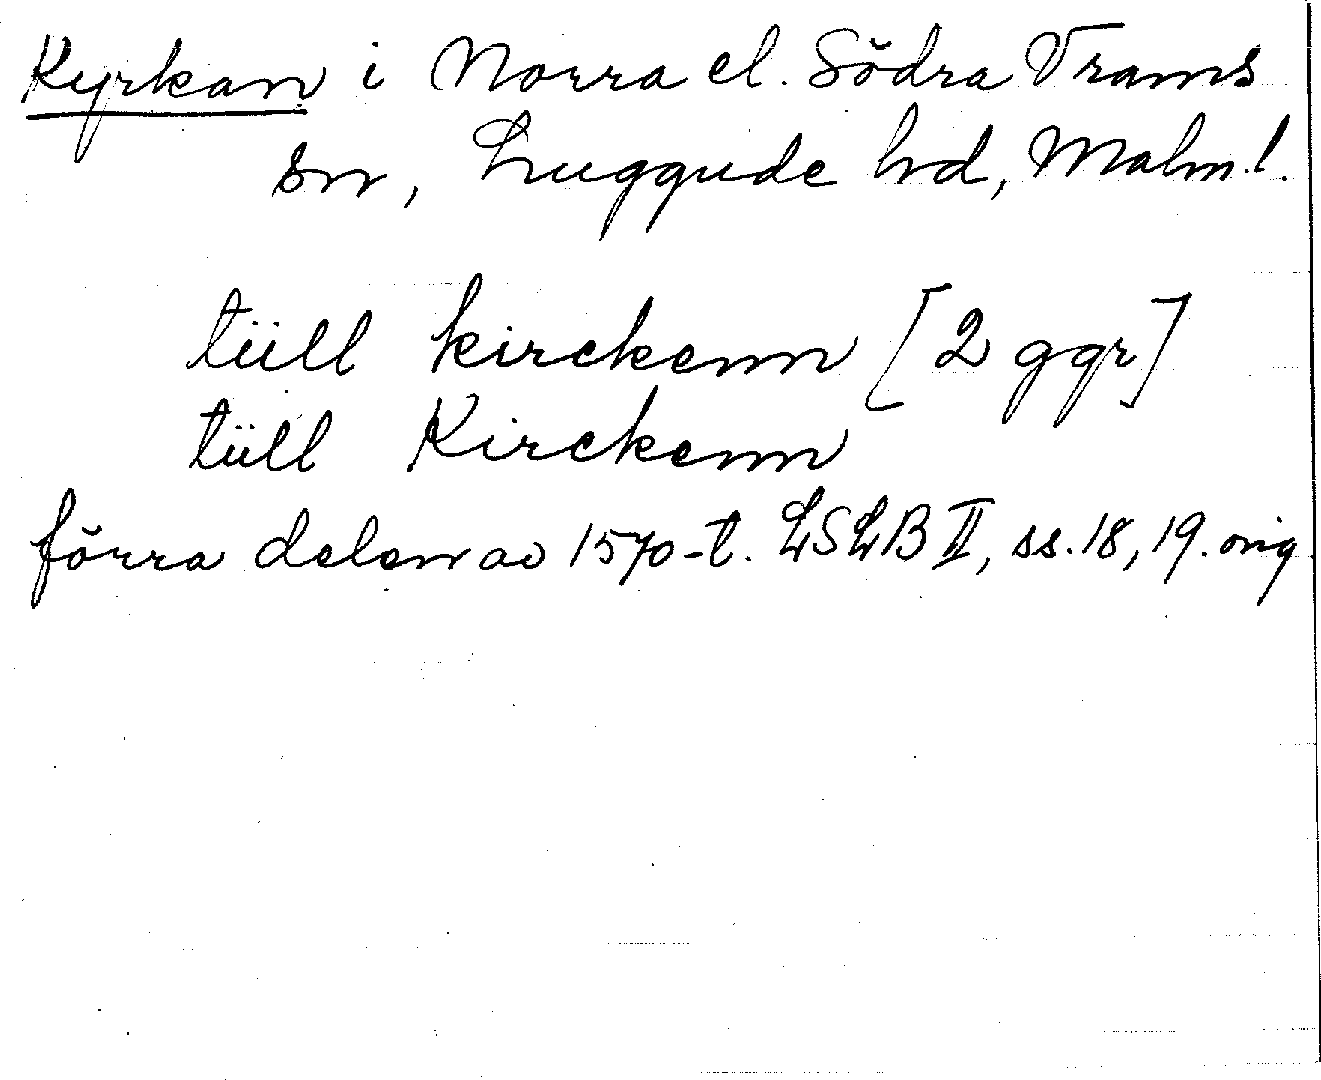 Kyrkan i Norra el. Södra Vrams
sn, Luggude hd, Malm.l.
tüll kirckenn [2 ggr]
tüll Kirckenn
förra delen av 1570-t. LSLB II, ss. 18, 19. orig.